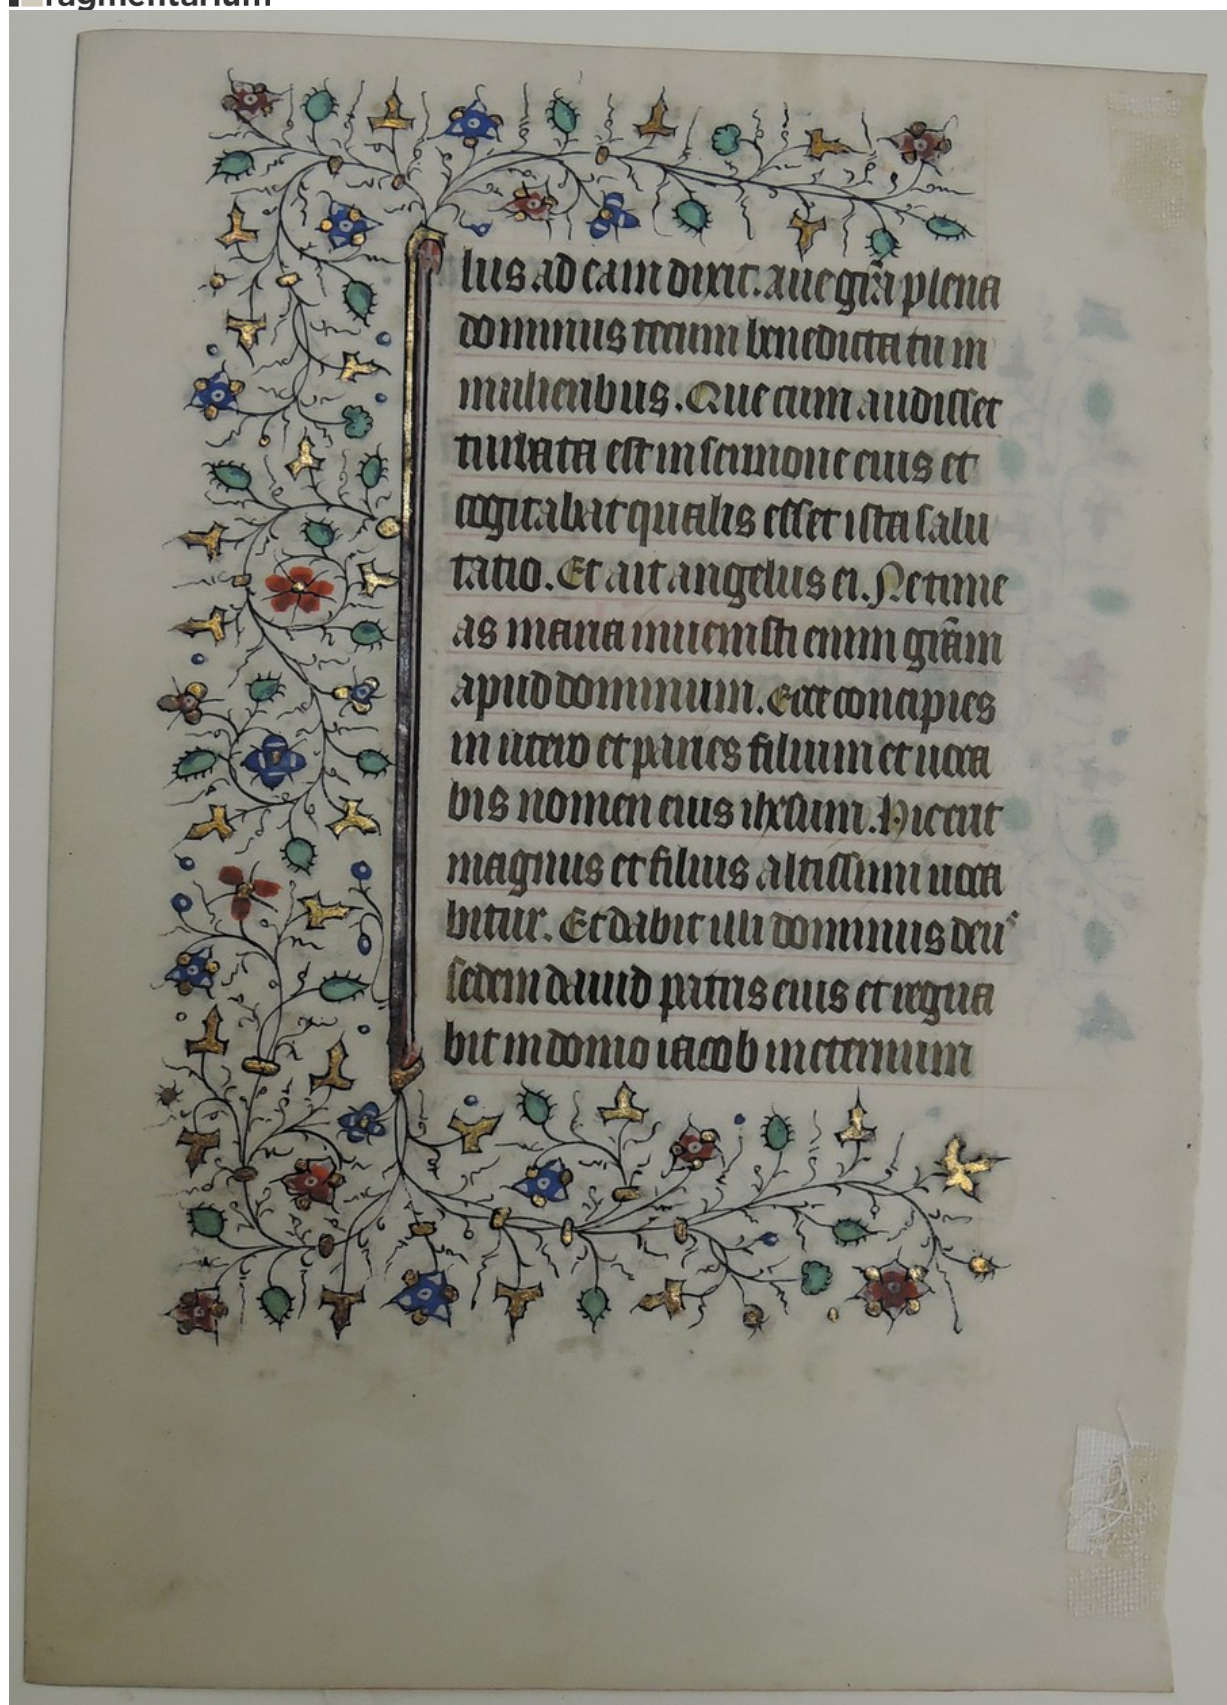 ragmentarium
lus ad eam dixit. aue grā plena
dominus tecum benedicta tu in
mulieribus. Que cum audisset
turbata est in sermone eius et
cogitabat qualis esset ista salu
tatio. Et ait angelus ei. Ne time
as maria inuenisti enim grām
apud dominum. Ecce concipies
in utero et paries filium et uoca
bis nomen eius ihesum. Hic erit
magnus et filius altissimi uoca
bitur. Et dabit illi dominus deus
sedem dauid patris eius et regna
bit in domo iacob in eternum